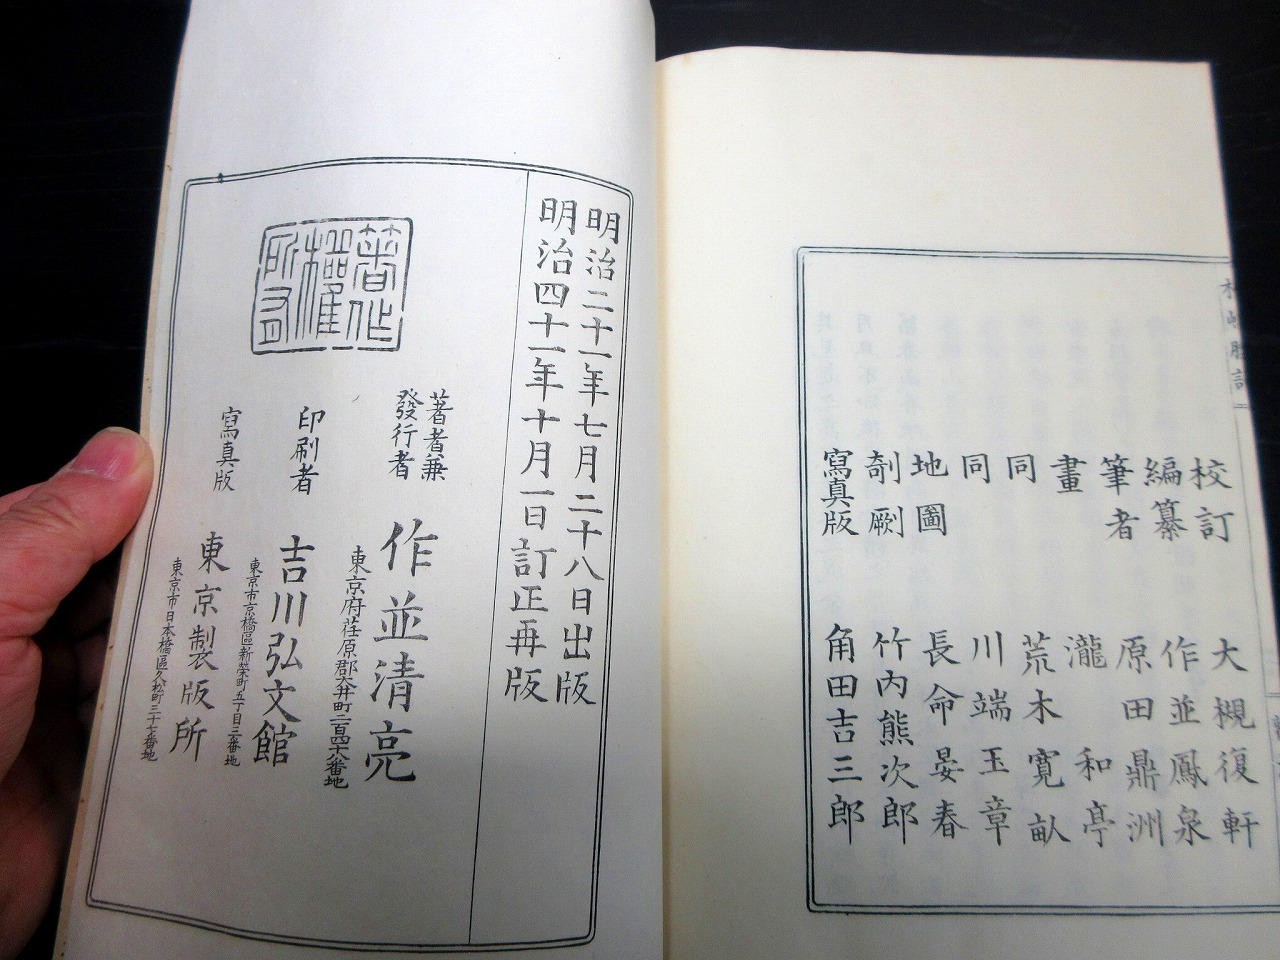 校訂 大槻復軒
編纂 作並鳳泉
筆者 原田鼎洲
畫 瀧和亭
同 荒木寛畝
同 川端玉章
地圖 長命晏春
剞劂 竹内熊次郎
寫真版 角田吉三郎
明治二十一年七月二十八日出版
明治四十一年十月一日訂正再版
著作
權
所有
著者兼
發行者
作並清亮
東京府荏原郡大井町二百四十六番地
印刷者 吉川弘文館
東京市京橋區新榮町五丁目三番地
寫真版 東京製版所
東京市日本橋區久松町三十七番地